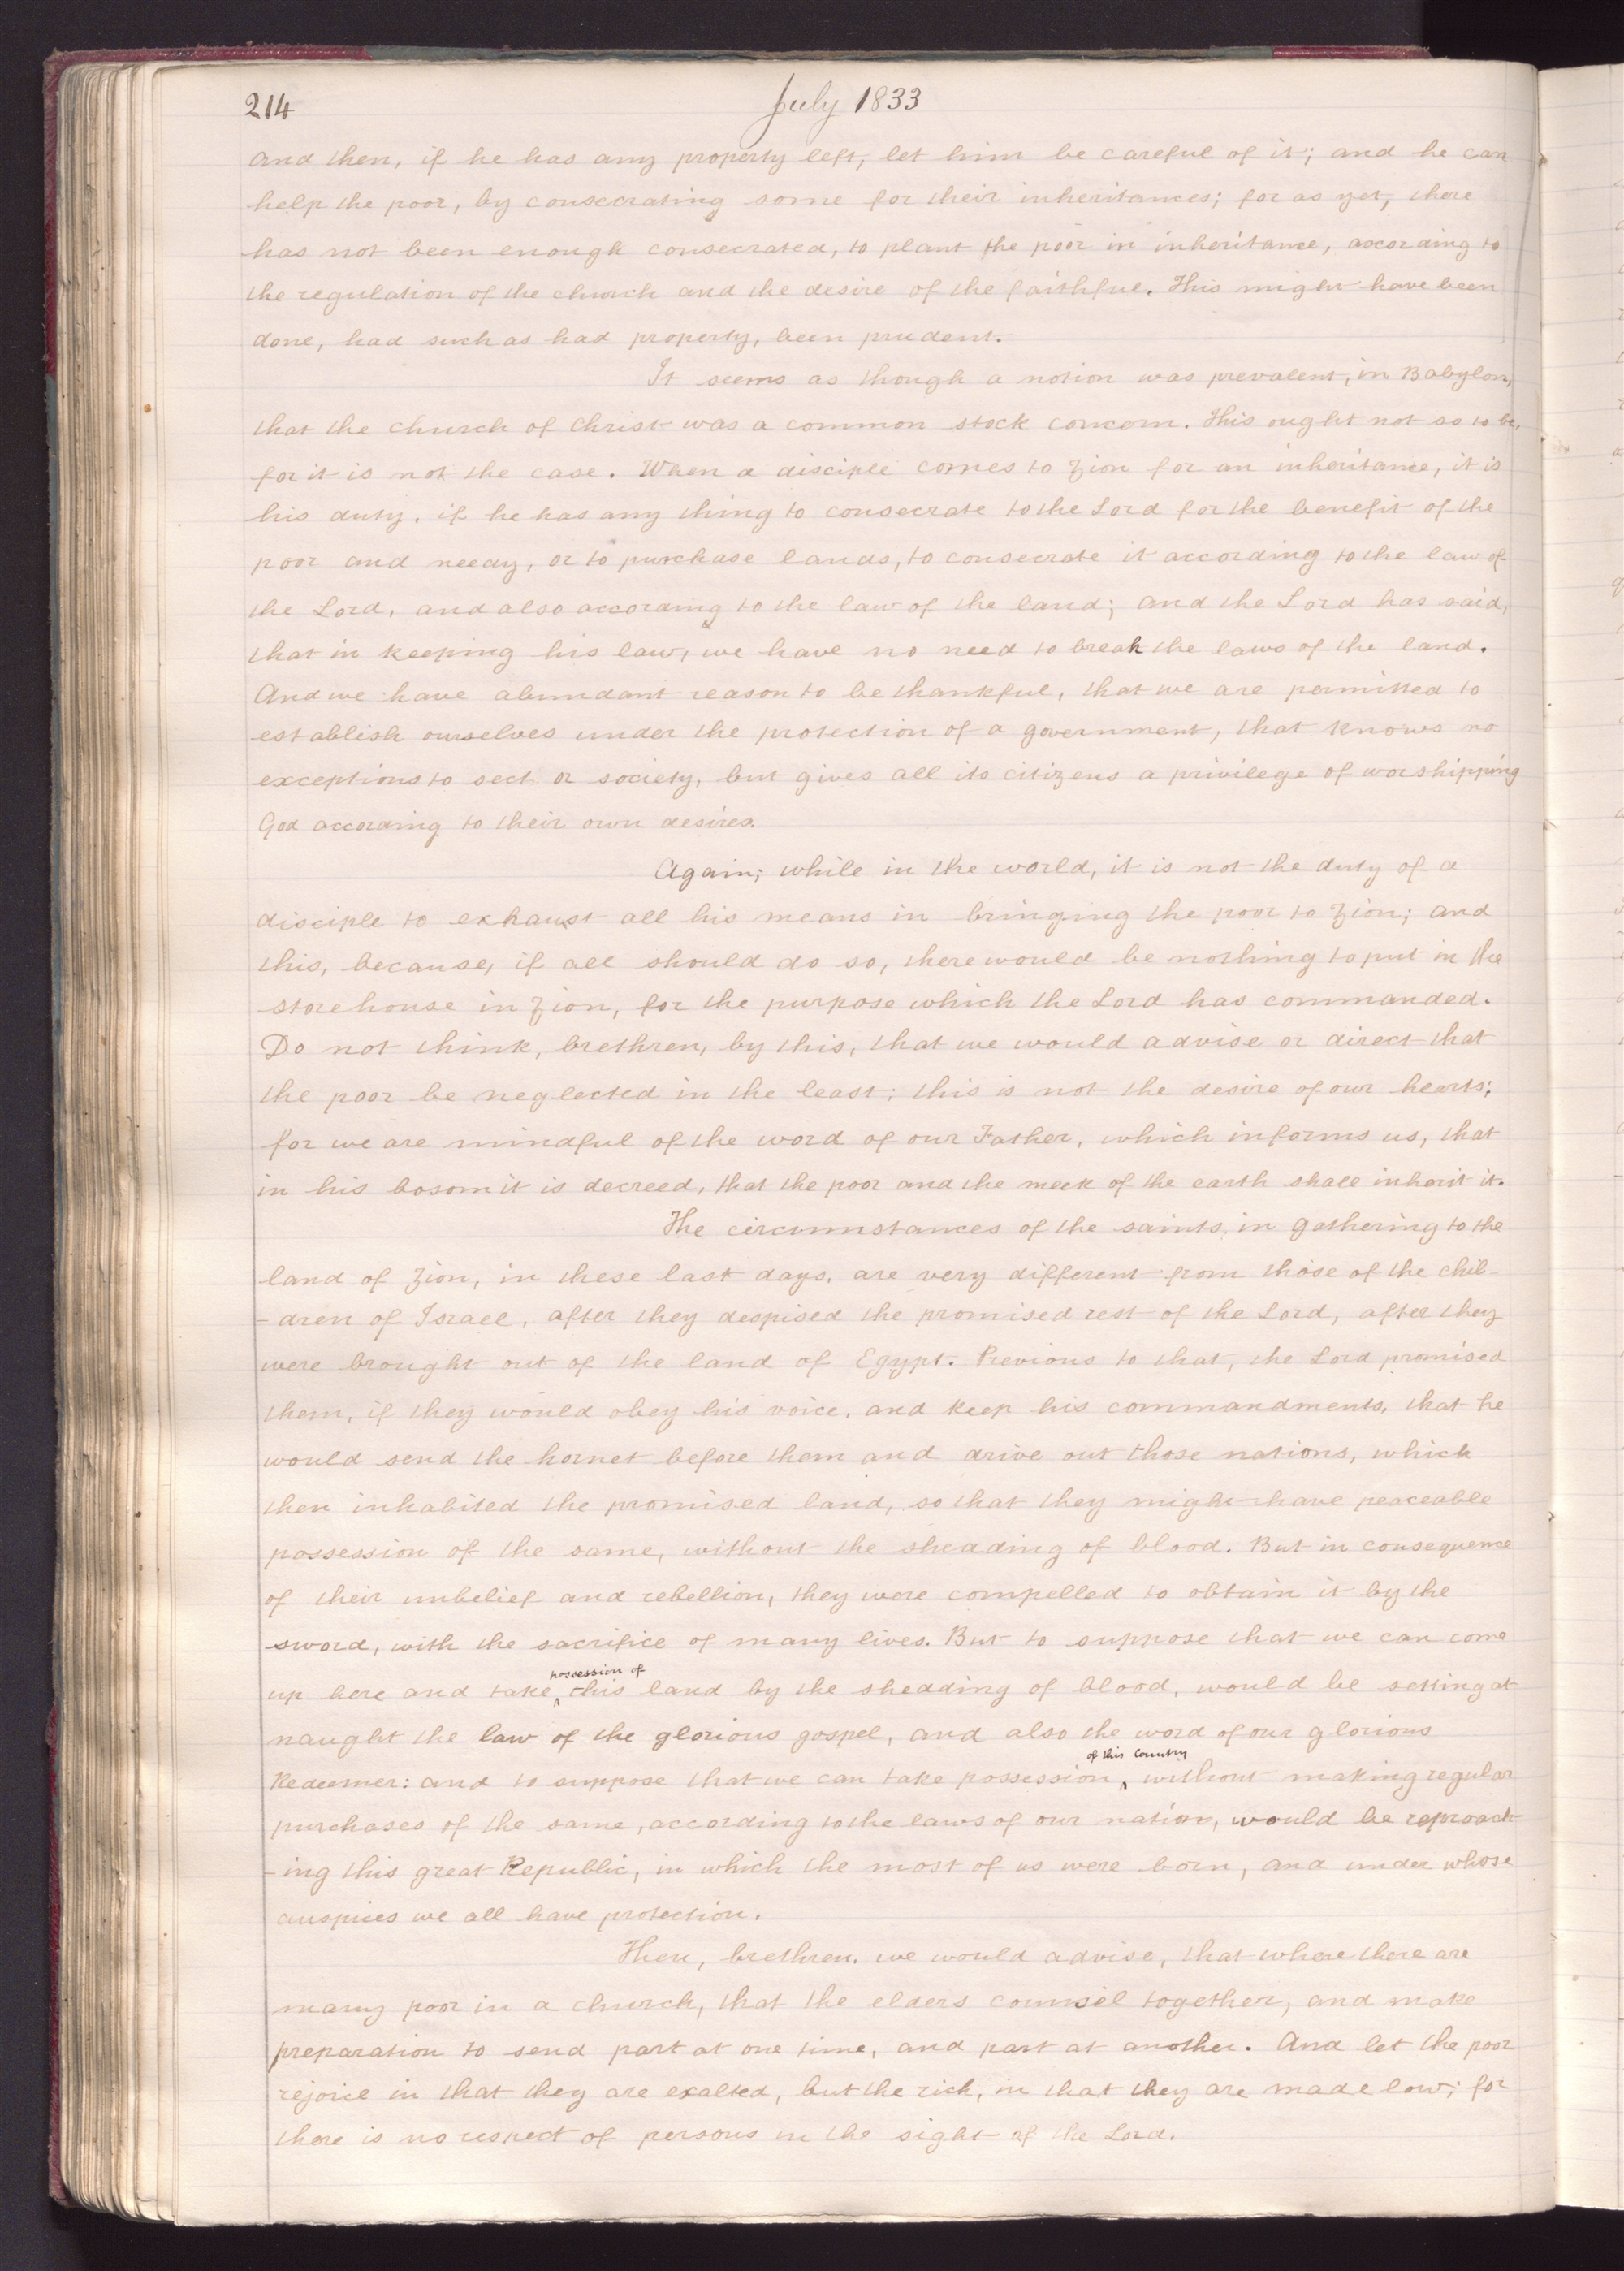 214
July 1833
and then, if he has any property left, let him be careful of it; and he can
help the poor, by consecrating some for their inheritances; for as yet, there
has not been enough consecrated, to plant the poor in inheritance, according to
the regulation of the church and the desire of the faithful. This might have been
done, had such as had property, been prudent.
It seems as though a notion was prevalent, in Babylon,
that the church of Christ was a common stock concern. This ought not so to be,
for it is not the case. When a disciple comes to Zion for an inheritance, it is
his duty, if he has any thing to consecrate to the Lord for the benefit of the
poor and needy, or to purchase lands, to consecrate it according to the law of
the Lord, and also according to the law of the land; and the Lord has said,
that in keeping his law, we have no need to break the laws of the land.
And we have abundant reason to be thankful, that we are permitted to
establish ourselves under the protection of a government, that knows no
exceptions to sect or society, but gives all its citizens a privilege of worshipping
God according to their own desires.
Again; while in the world, it is not the duty of a
disciple to exhaust all his means in bringing the poor to Zion; and
this, because, if all should do so, there would be nothing to put in the
storehouse in Zion, for the purpose which the Lord has commanded.
Do not think, brethren, by this, that we would advise or direct that
the poor be neglected in the least; this is not the desire of our hearts;
for we are mindful of the word of our Father, which informs us, that
in his bosom it is decreed, that the poor and the meek of the earth shall inherit it.
The circumstances of the saints, in gathering to the
land of Zion, in these last days, are very different from those of the chil-
-dren of Israel, after they despised the promised rest of the Lord, after they
were brought out of the land of Egypt. Previous to that, the Lord promised
them, if they would obey his voice, and keep his commandments, that he
would send the hornet before them and drive out those nations, which
then inhabited the promised land, so that they might have peaceable
possession of the same, without the shedding of blood. But in consequence
of their unbelief and rebellion, they were compelled to obtain it by the
sword, with the sacrifice of many lives. But to suppose that we can come
up here and take possession of this land by the shedding of blood, would be setting at
naught the law of the glorious gospel, and also the word of our glorious
Redeemer: and to suppose that we can take possession of this Country without making regular
purchases of the same, according to the laws of our nation, would be reproach-
-ing this great Republic, in which the most of us were born, and under whose
auspices we all have protection.
Then, brethren, we would advise, that where there are
many poor in a church, that the elders counsel together, and make
preparation to send part at one time, and part at another. And let the poor
rejoice in that they are exalted, but the rich, in that they are made low; for
there is no respect of persons in the sight of the Lord.